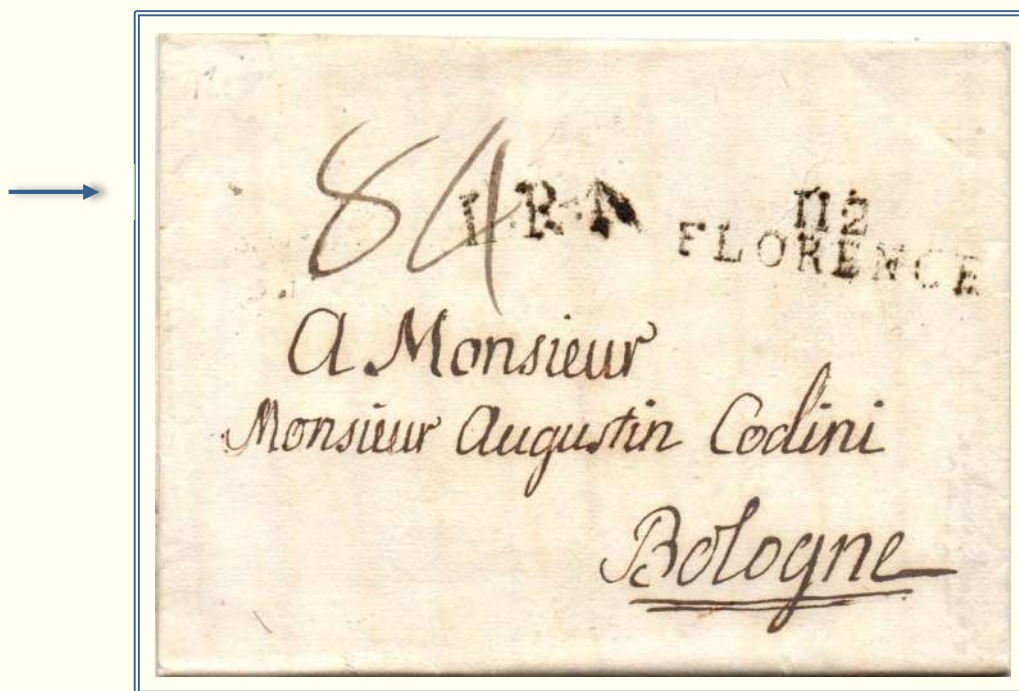 84
L.R.I
112
FLORENCE
A Monsieur
Monsieur Augustin Codini
Bologne